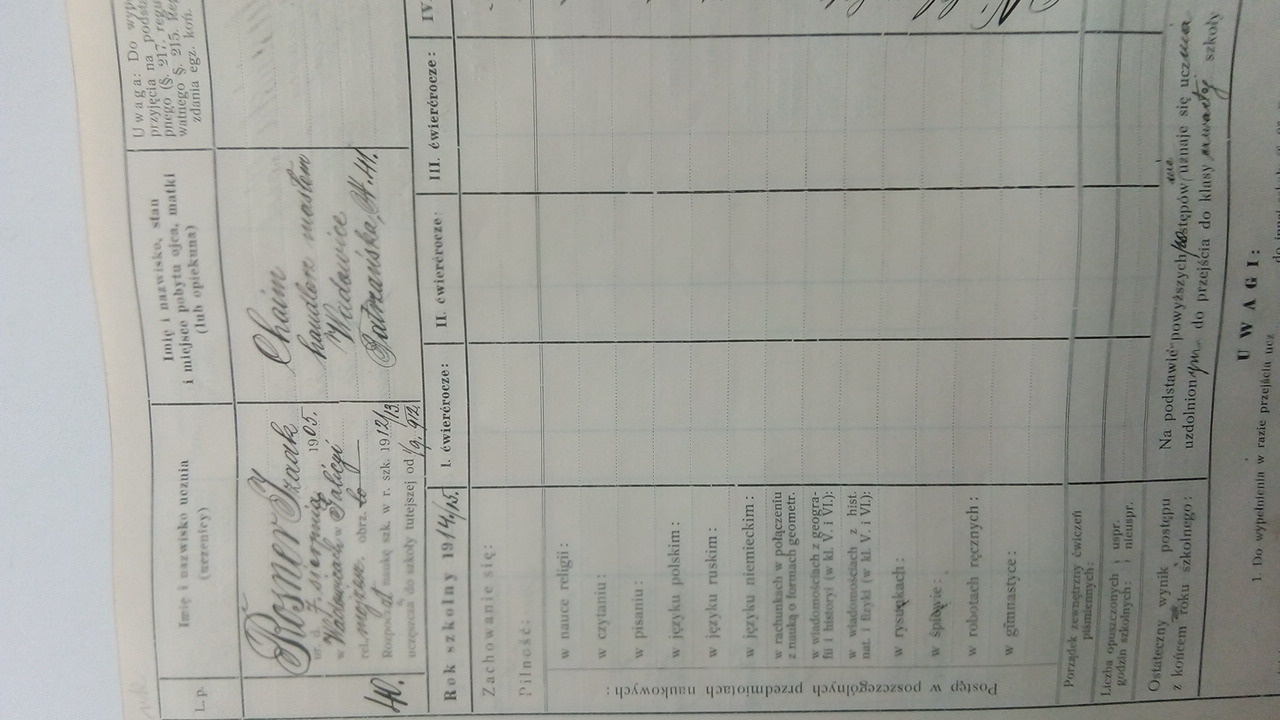 Uwaga: Do wyp
przyjęcia na podsta
pnego (§. 217. regu
watnego §. 215. Reg
zdania egz. koń.
L. p.
Imię i nazwisko ucznia
(uczennicy)
Imię i nazwisko, stan
i miejsce pobytu ojca, matki
(lub opiekuna)
40.
Rosner Izaak
ur. d. 7. sierpnia 1905.
w Wadowicach w Galicyi
rel. mojżesz. obrz.
Rozpoczął naukę szk. w r. szk. 1912/13
uczęszcza do szkoły tutejszej od 1/9. 912
Chaim
handlarz masłem
Wadowice
Tatrzańska, 41.
Rok szkolny 1914/15.
I. ćwierćrocze:
II. ćwierćrocze:
III. ćwierćrocze:
IV.
Zachowanie się:
Pilność:
Postęp w poszczególnych przedmiotach naukowych:
w nauce religii:
w czytaniu:
w pisaniu:
w języku polskim:
w języku ruskim:
w języku niemieckim:
w rachunkach w połączeniu
z nauką o formach geometr.
w wiadomościach z geogra-
fii i historyi (w kl. V. i VI.):
w wiadomościach z hist.
nat. i fizyki (w kl. V. i VI.):
w rysunkach:
w śpiewie:
w robotach ręcznych:
w gimnastyce:
Porządek zewnętrzny ćwiczeń
piśmiennych:
Liczba opuszczonych
godzin szkolnych:
uspr.
nieuspr.
Ostateczny wynik postępu
z końcem roku szkolnego:
Na podstawie powyższych postępów nie uznaje się ucznia
uzdolnionym do przejścia do klasy szkoły
UWAGI:
1. Do wypełnienia w razie przejścia ucz